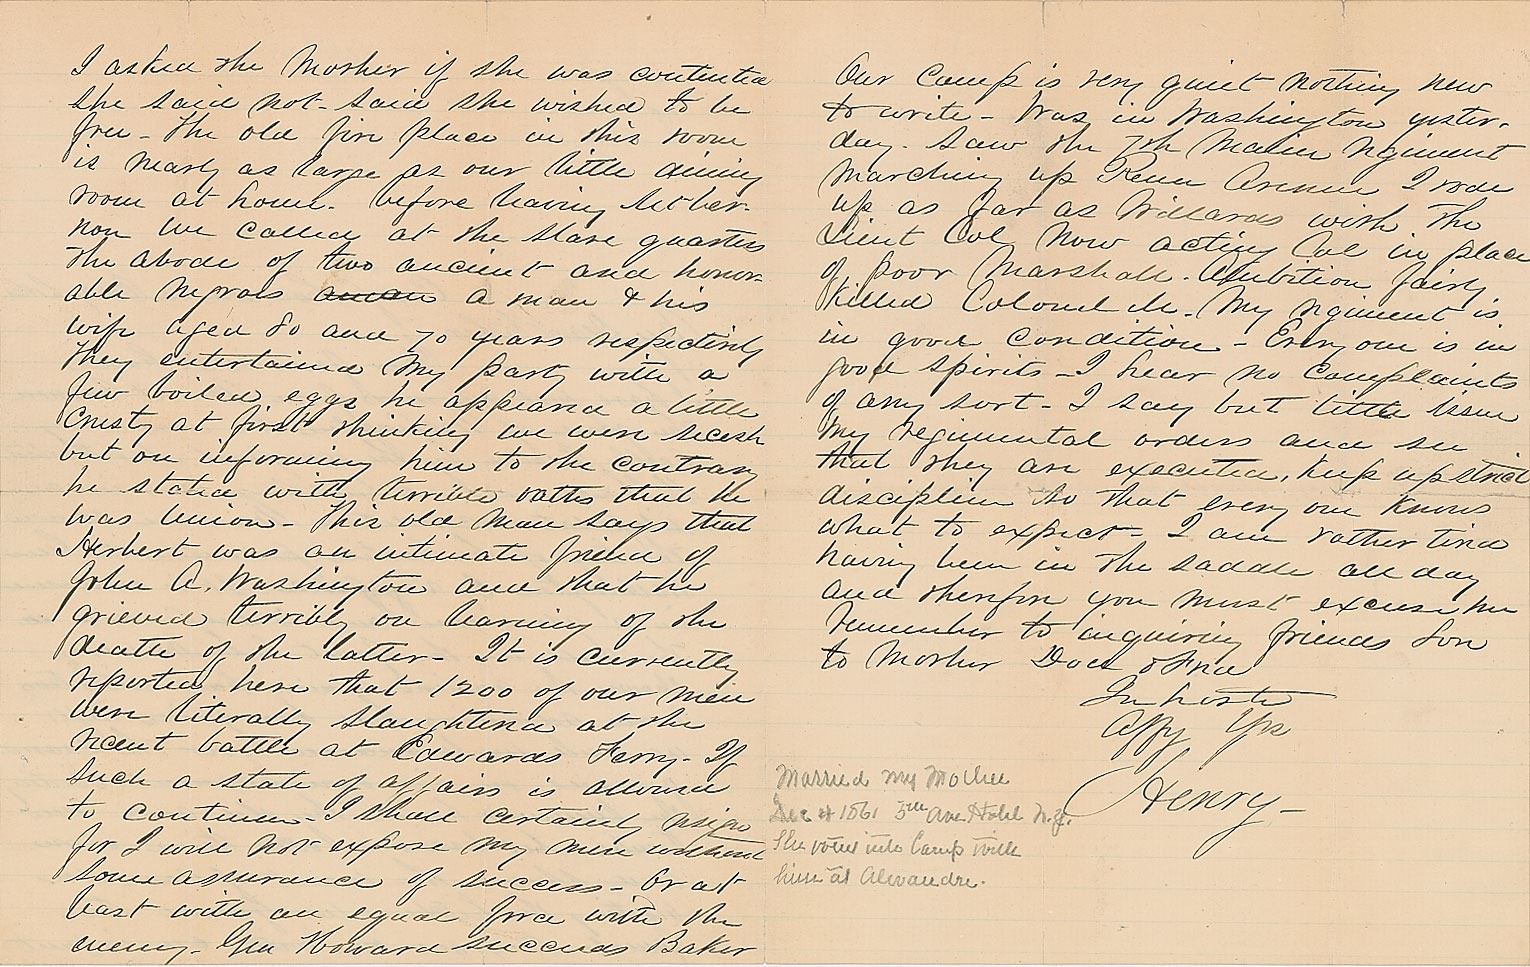 I asked the Mother if she was contented
she said not - said she wished to be
free - The old fire place in this room
is nearly as large as our little dining
room at home. before leaving Mt Ver-
non we called at the slave quarters
The abode of two ancient and honor-
able negroes a man & his
wife aged 80 and 70 years respectively
They entertained My party with a
few boiled eggs he appeared a little
crusty at first thinking we were secesh
but on informing him to the contrary
he stated with terrible oaths that he
was Union - This old Man says that
Herbert was an intimate friend of
John A. Washington and that he
grieved terribly on learning of the
death of the latter - It is currently
reported here that 1200 of our men
were literally slaughtered at the
recent battle at Edwards Ferry - If
such a state of affairs is allowed
to continue - I shall certainly resign
for I will not expose my men without
some assurance of success - Or at
least with an equal force with the
enemy - Gen Howard succeeds Baker
Our Camp is very quiet Nothing new
to write - Was in Washington yester-
day. Saw the 7th Maine regiment
Marching up Penn Avenue I rode
up as far as Willards with the
Lieut Col, Now acting Col in place
of, poor Marshall. Ambition fairly
Killed Colonel M - My regiment is
in good Condition - Every one is in
good spirits - I hear no Complaints
of any sort - I say but little Issue
My regimental orders and see
that they are executed, keep up strict
discipline so that every one Knows
what to expect - I am rather tired
having been in the saddle all day
and therefore you must excuse me
Remember to inquiring friends Love
to Mother Dora & Fred
In haste
Affy Yrs
Henry -
Married my Mother
Dec 4 1861 5th Ave. Hotel N.Y.
She into Camp with
him at